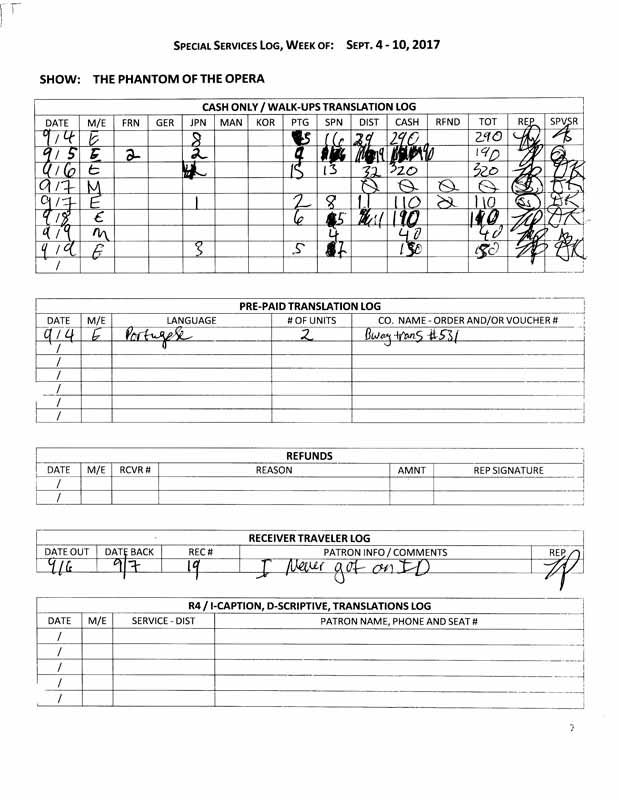 SPECIAL SERVICES LOG, WEEK OF: SEPT. 4 - 10, 2017
SHOW: THE PHANTOM OF THE OPERA
CASH ONLY / WALK-UPS TRANSLATION LOG
DATE M/E FRN GER JPN MAN KOR PTG SPN DIST CASH RFND TOT REP SPVSR
9/4 E 8 5 16 29 290 290
9/5 E 2 2 9 6 19 190 190
9/6 E 15 13 32 320 320
9/7 M Ø Ø Ø Ø
9/7 E 1 2 8 11 110 Ø 110
9/8 E 6 5 11 190
9/9 M 4 40 40
9/9 E 3 5 7 150 150
/
PRE-PAID TRANSLATION LOG
DATE M/E LANGUAGE # OF UNITS CO. NAME - ORDER AND/OR VOUCHER #
9/4 E Portugese 2 Bway trans #531
/
/
/
/
/
REFUNDS
DATE M/E RCVR # REASON AMNT REP SIGNATURE
/
/
RECEIVER TRAVELER LOG
DATE OUT DATE BACK REC # PATRON INFO / COMMENTS REP
9/6 9/7 19 I Never got an ID
R4 / I-CAPTION, D-SCRIPTIVE, TRANSLATIONS LOG
DATE M/E SERVICE - DIST PATRON NAME, PHONE AND SEAT #
/
/
/
/
/